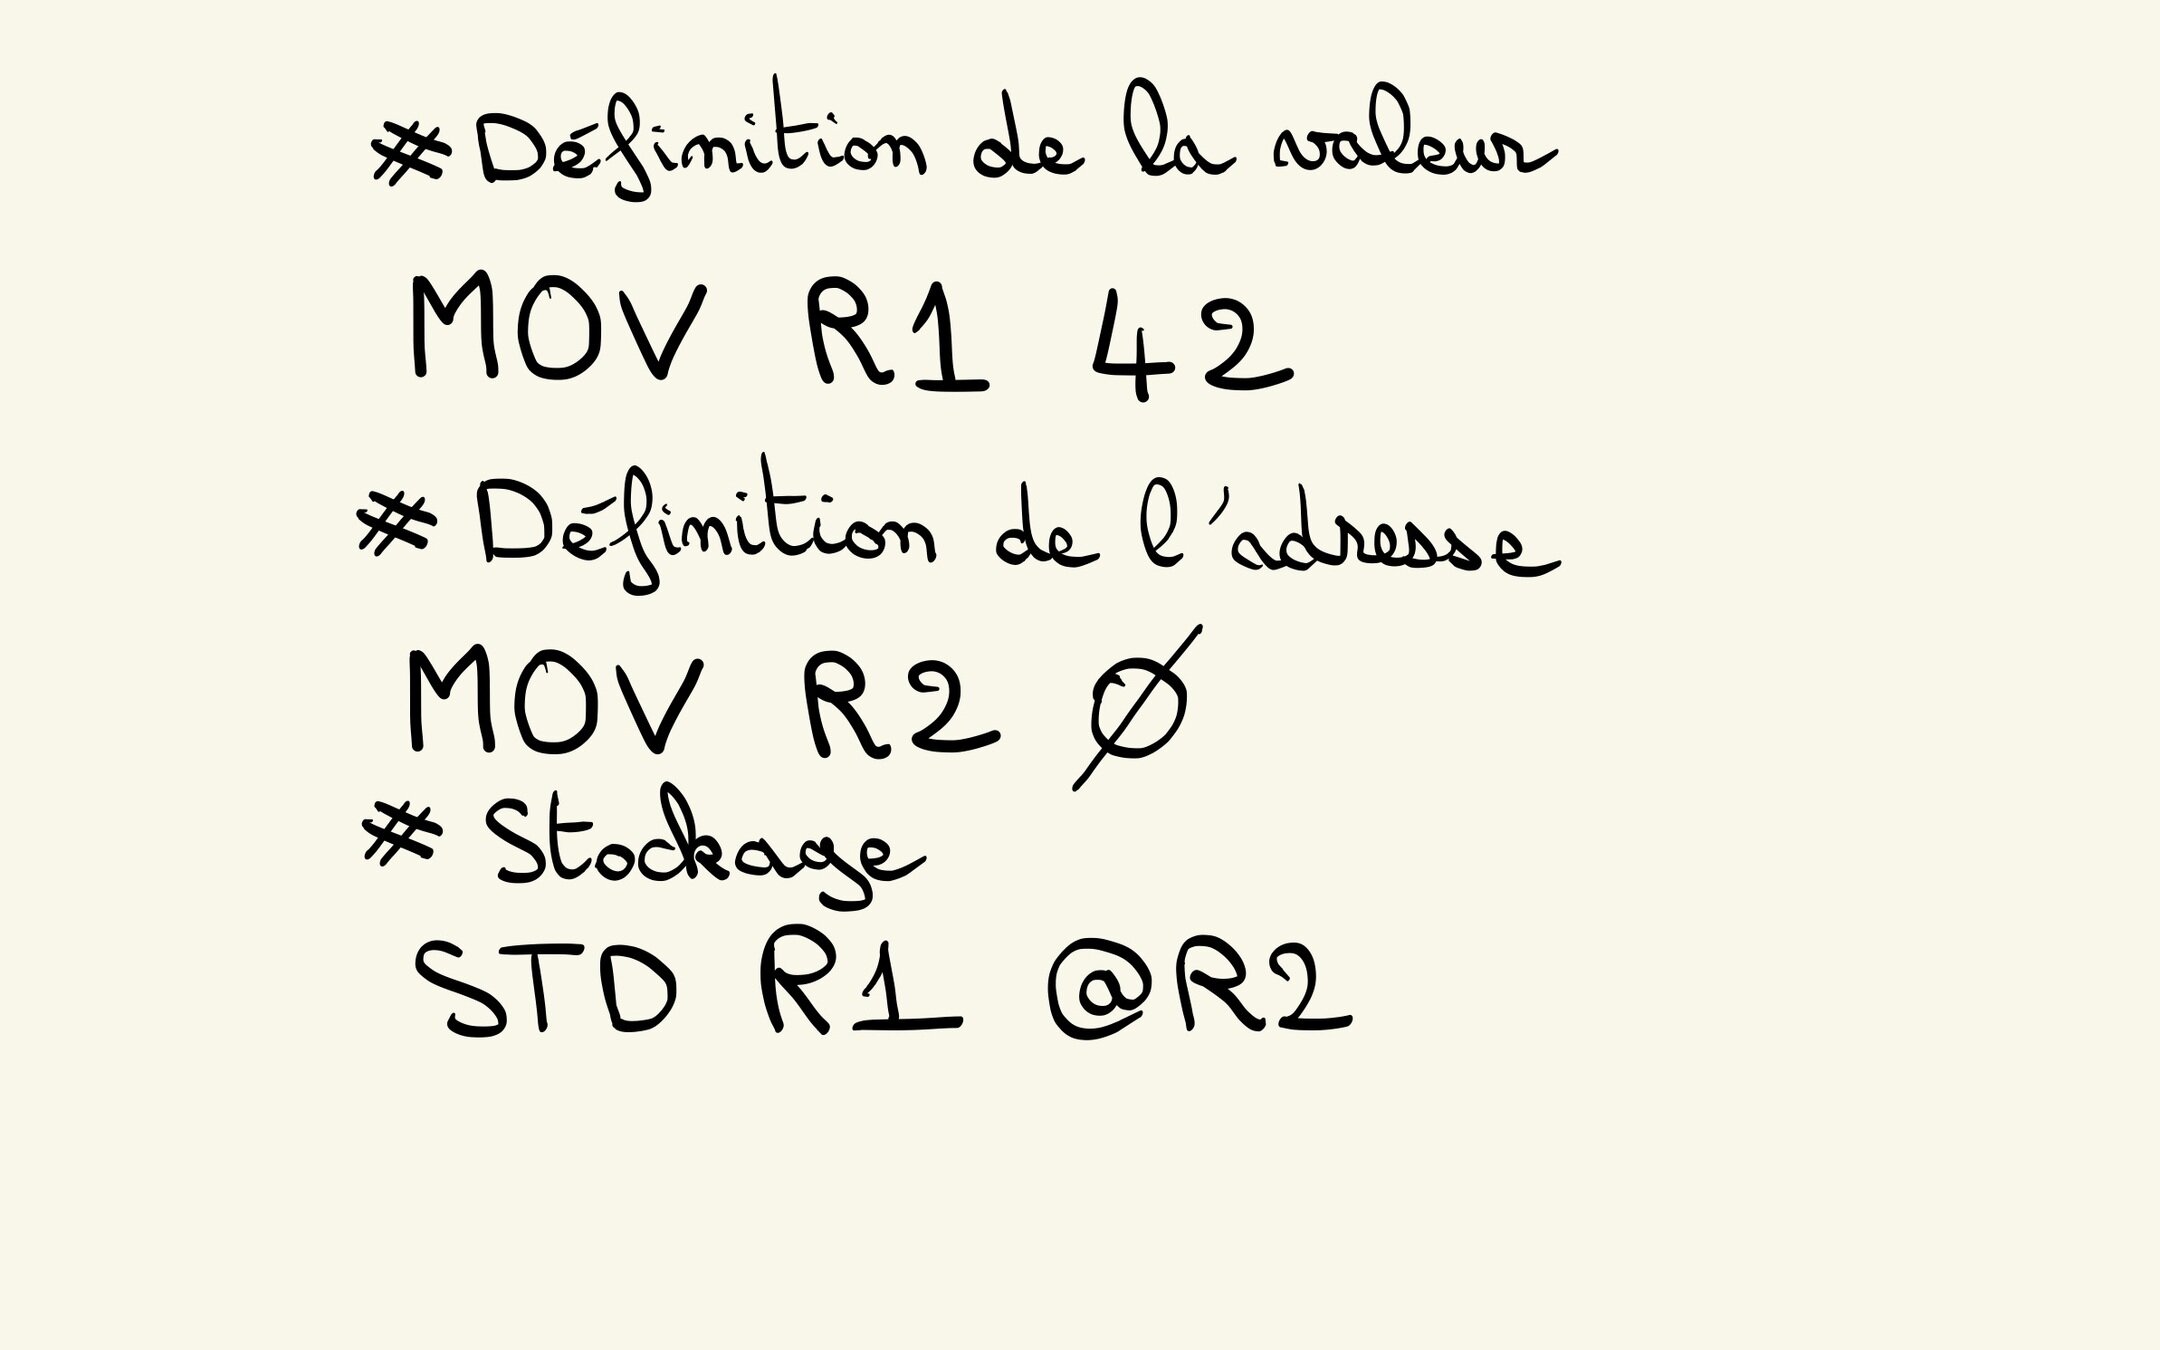 # Définition de la valeur
MOV R1 42
# Définition de l'adresse
MOV R2 0
# Stockage
STD R1 @R2